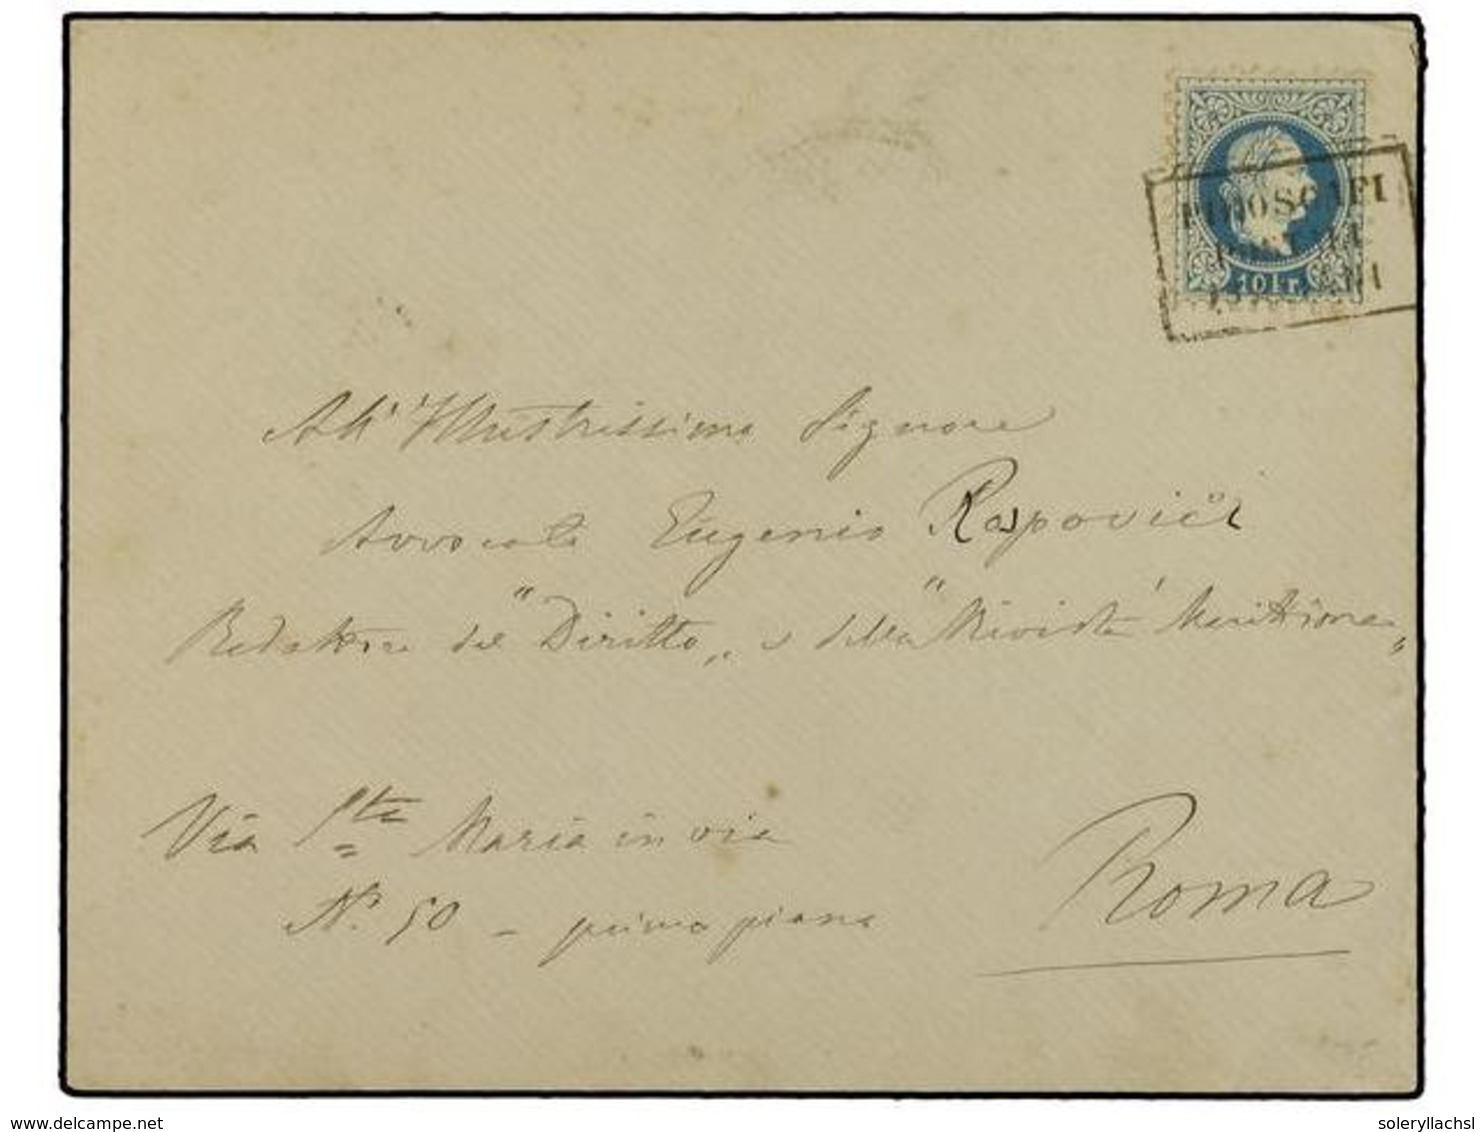 PIROSCAFI
POSTALI
ITALIANI
10 kr.
All' Illustrissimo Signore
Avvocato Eugenio Raspovići
Redattore del "Diritto„ e della "Rivista Marittima„
Via Sta Maria in via
N.º 50 - primo piano
Roma
delcampe.net
soleryllachsl